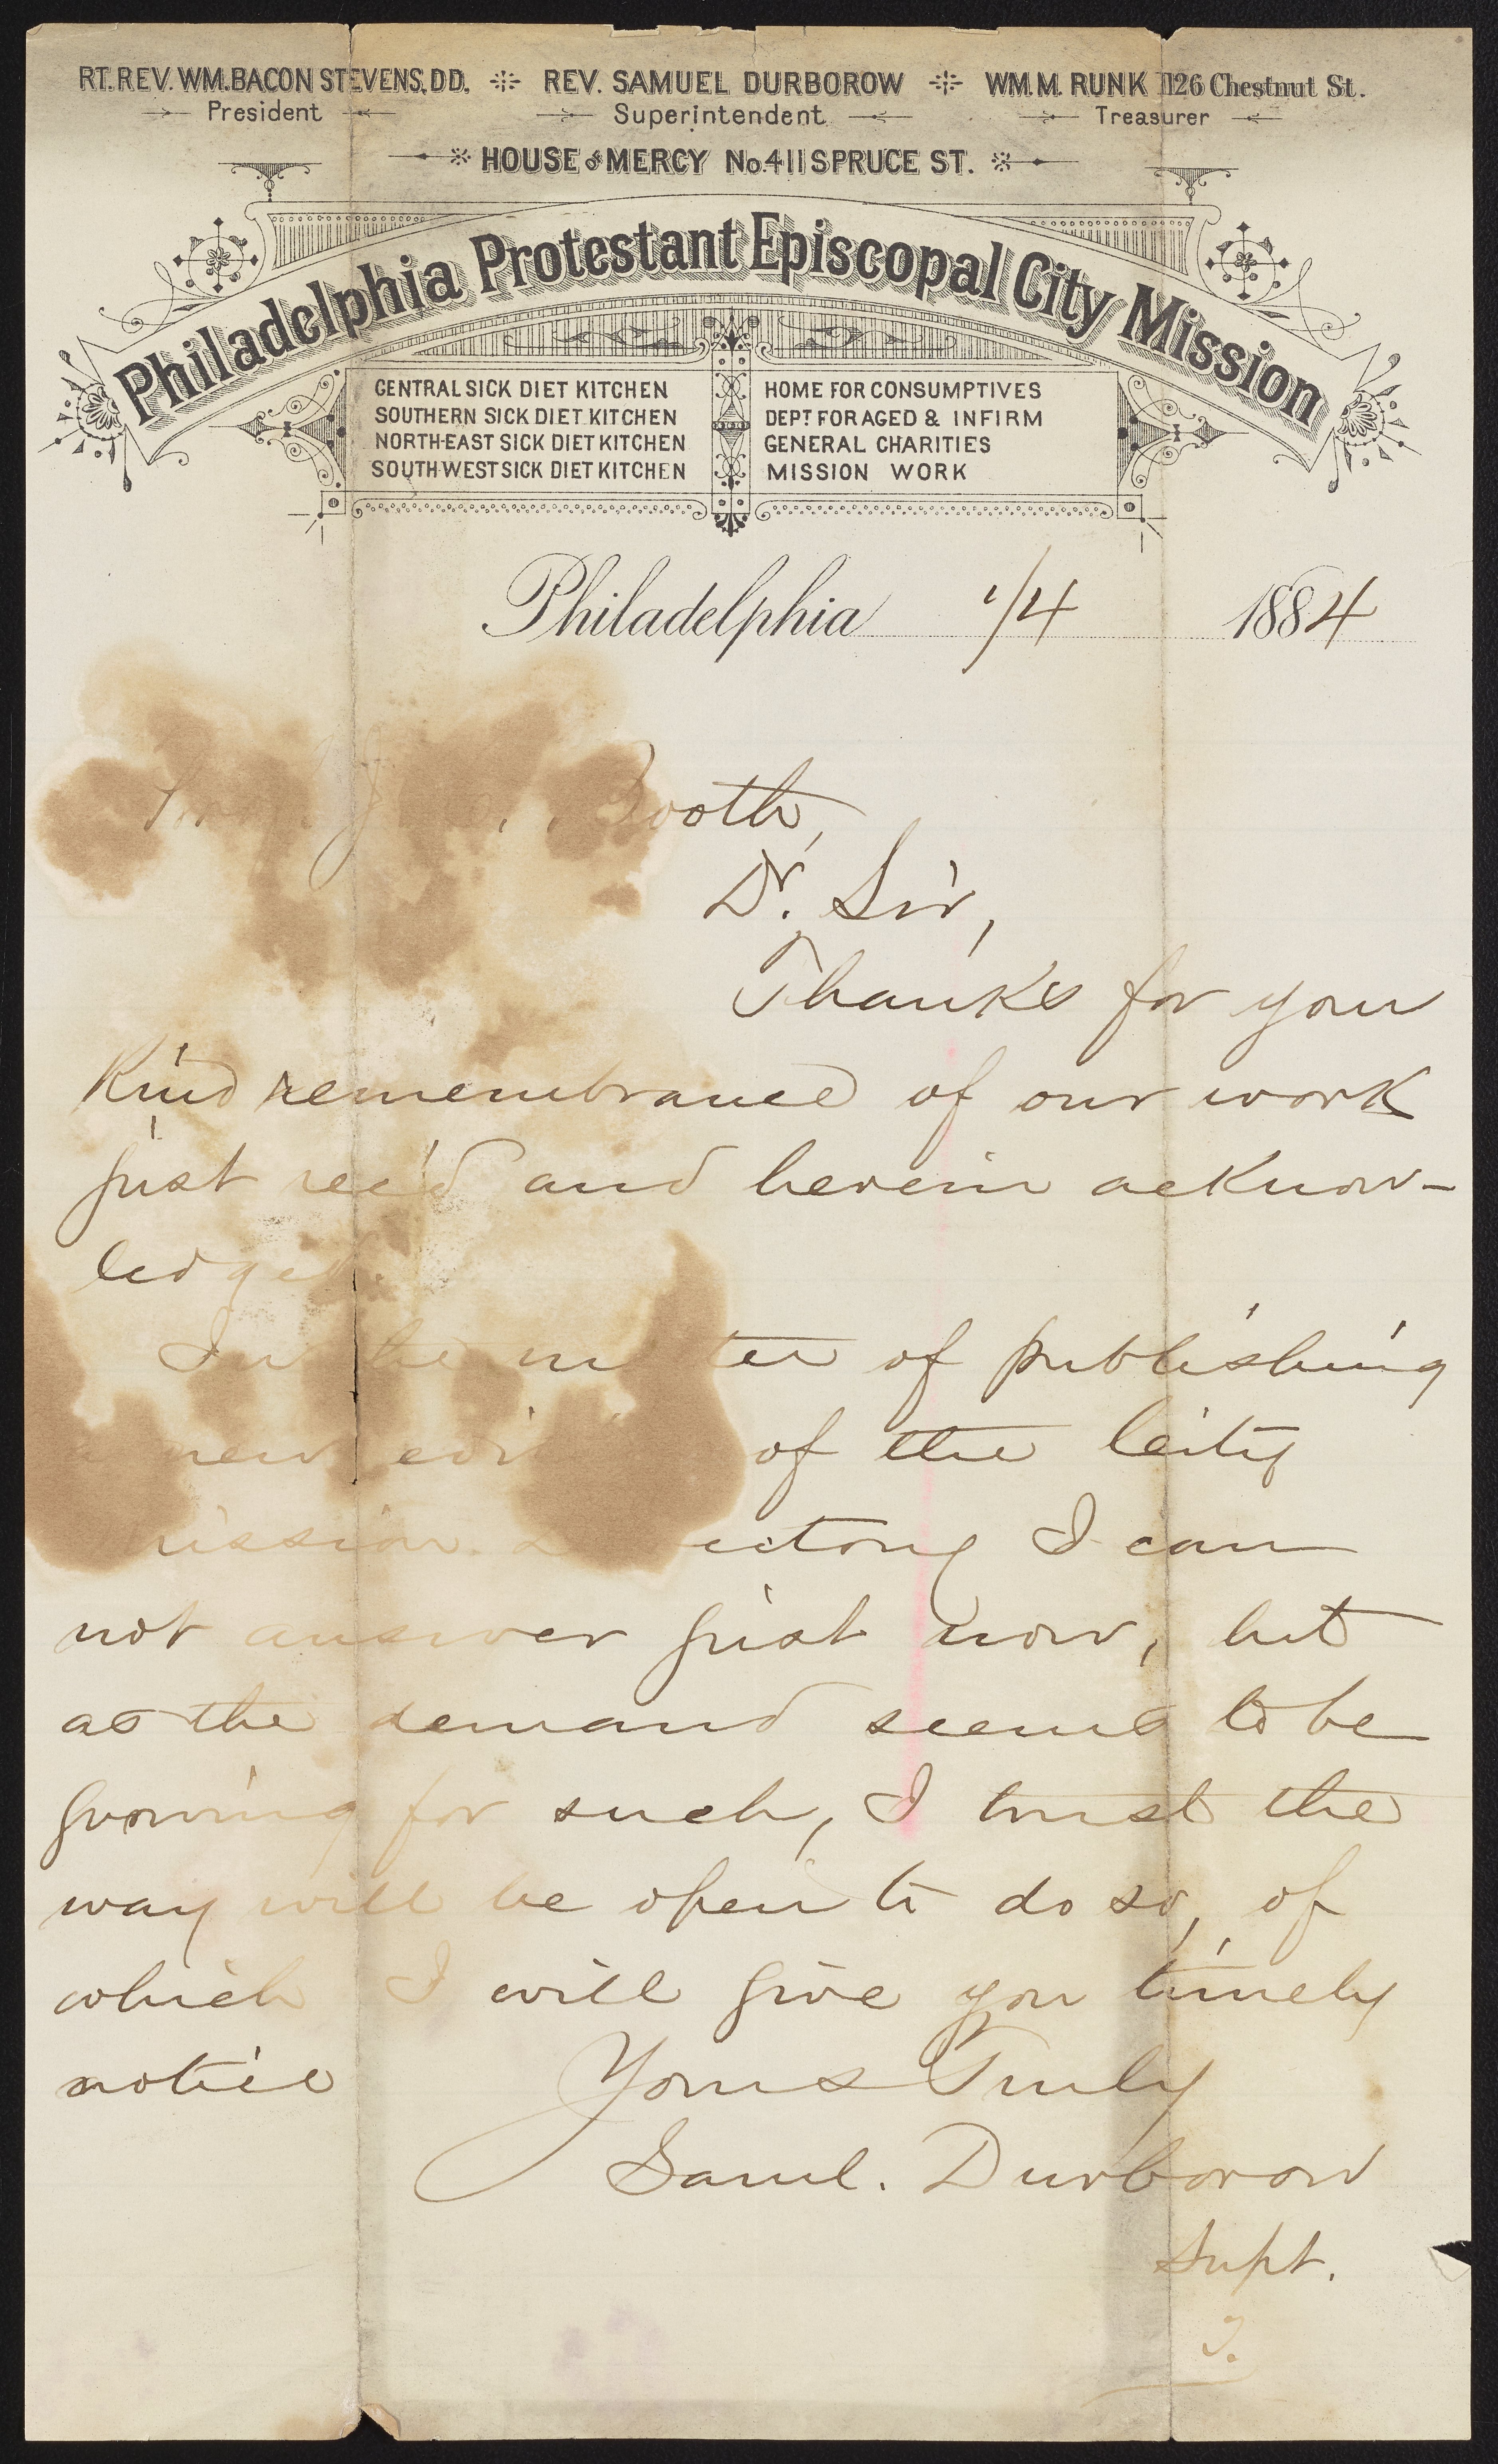 RT. REV. WM. BACON STEVENS, DD. REV. SAMUEL DURBOROW WM. M. RUNK 1126 Chestnut St.
President Superintendent Treasurer
HOUSE of MERCY No. 411 SPRUCE ST.
Philadelphia Protestant Episcopal City Mission
CENTRAL SICK DIET KITCHEN
SOUTHERN SICK DIET KITCHEN
NORTH-EAST SICK DIET KITCHEN
SOUTH-WEST SICK DIET KITCHEN
HOME FOR CONSUMPTIVES
DEPT. FOR AGED & INFIRM
GENERAL CHARITIES
MISSION WORK
Philadelphia 1/4 1884
Booth,
Dr. Sir,
Thanks for your
Kind remembrance of our work
just rec'd and herein acknow-
ledged.
In the matter of publishing
new edition of the City
Mission Directory I can
not answer just now, but
as the demand seems to be
growing for such, I trust the
way will be open to do so, of
which I will give you timely
notice
Yours Truly
Saml. Durborow
Supt.